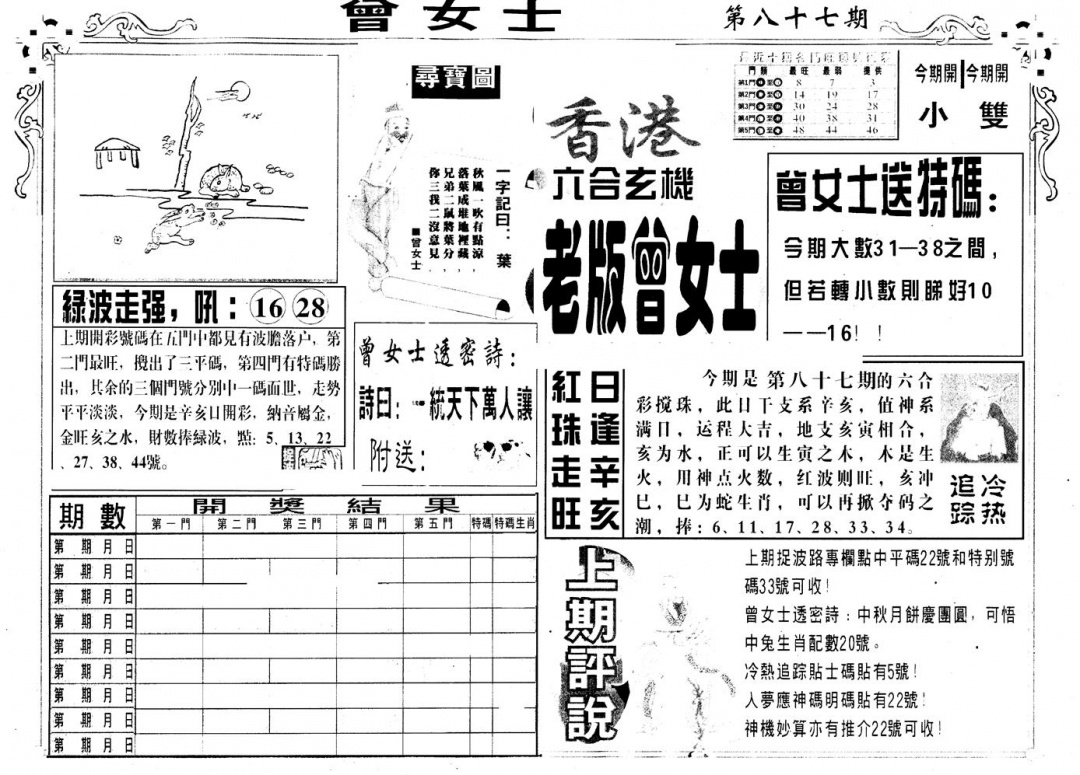 曾女士
第八十七期
尋寶圖
一字記曰：葉
秋風一吹有點涼，
落葉成堆地裡藏，
兄弟二鼠將葉分，
你三我二沒意見，
■曾女士
香港
六合玄機
老版曾女士
門類 最旺 最弱 提供
第1門 至 8 7 3
第2門 至 14 19 17
第3門 至 30 24 28
第4門 至 40 38 31
第5門 至 48 44 46
今期開 今期開
小 雙
曾女士送特碼：
今期大數31—38之間，
但若轉小數則睇好10
——16！！
綠波走强，吼：16 28
上期開彩號碼在五門中都見有波膽落户，第
二門最旺，攪出了三平碼，第四門有特碼勝
出，其余的三個門號分別中一碼面世，走勢
平平淡淡，今期是辛亥日開彩，納音屬金，
金旺亥之水，財數捧緑波，點：5、13、22
、27、38、44號。
曾女士透密詩：
詩曰：一統天下萬人讓
附送：
紅珠走旺
日逢辛亥
今期是第八十七期的六合
彩搅珠，此日干支系辛亥，值神系
满日，运程大吉，地支亥寅相合，
亥为水，正可以生寅之木，木是生
火，用神点火数，红波则旺，亥冲
巳，巳为蛇生肖，可以再掀夺码之
潮，捧：6、11、17、28、33、34。
冷热
追踪
開獎結果
期數 第一門 第二門 第三門 第四門 第五門 特碼 特碼生肖
第 期 月 日
第 期 月 日
第 期 月 日
第 期 月 日
第 期 月 日
第 期 月 日
第 期 月 日
第 期 月 日
第 期 月 日
上期評說
上期捉波路專欄點中平碼22號和特别號
碼33號可收！
曾女士透密詩：中秋月餅慶團圓，可悟
中兔生肖配數20號。
冷熱追踪貼士碼貼有5號！
人夢應神碼明碼貼有22號！
神機妙算亦有推介22號可收！